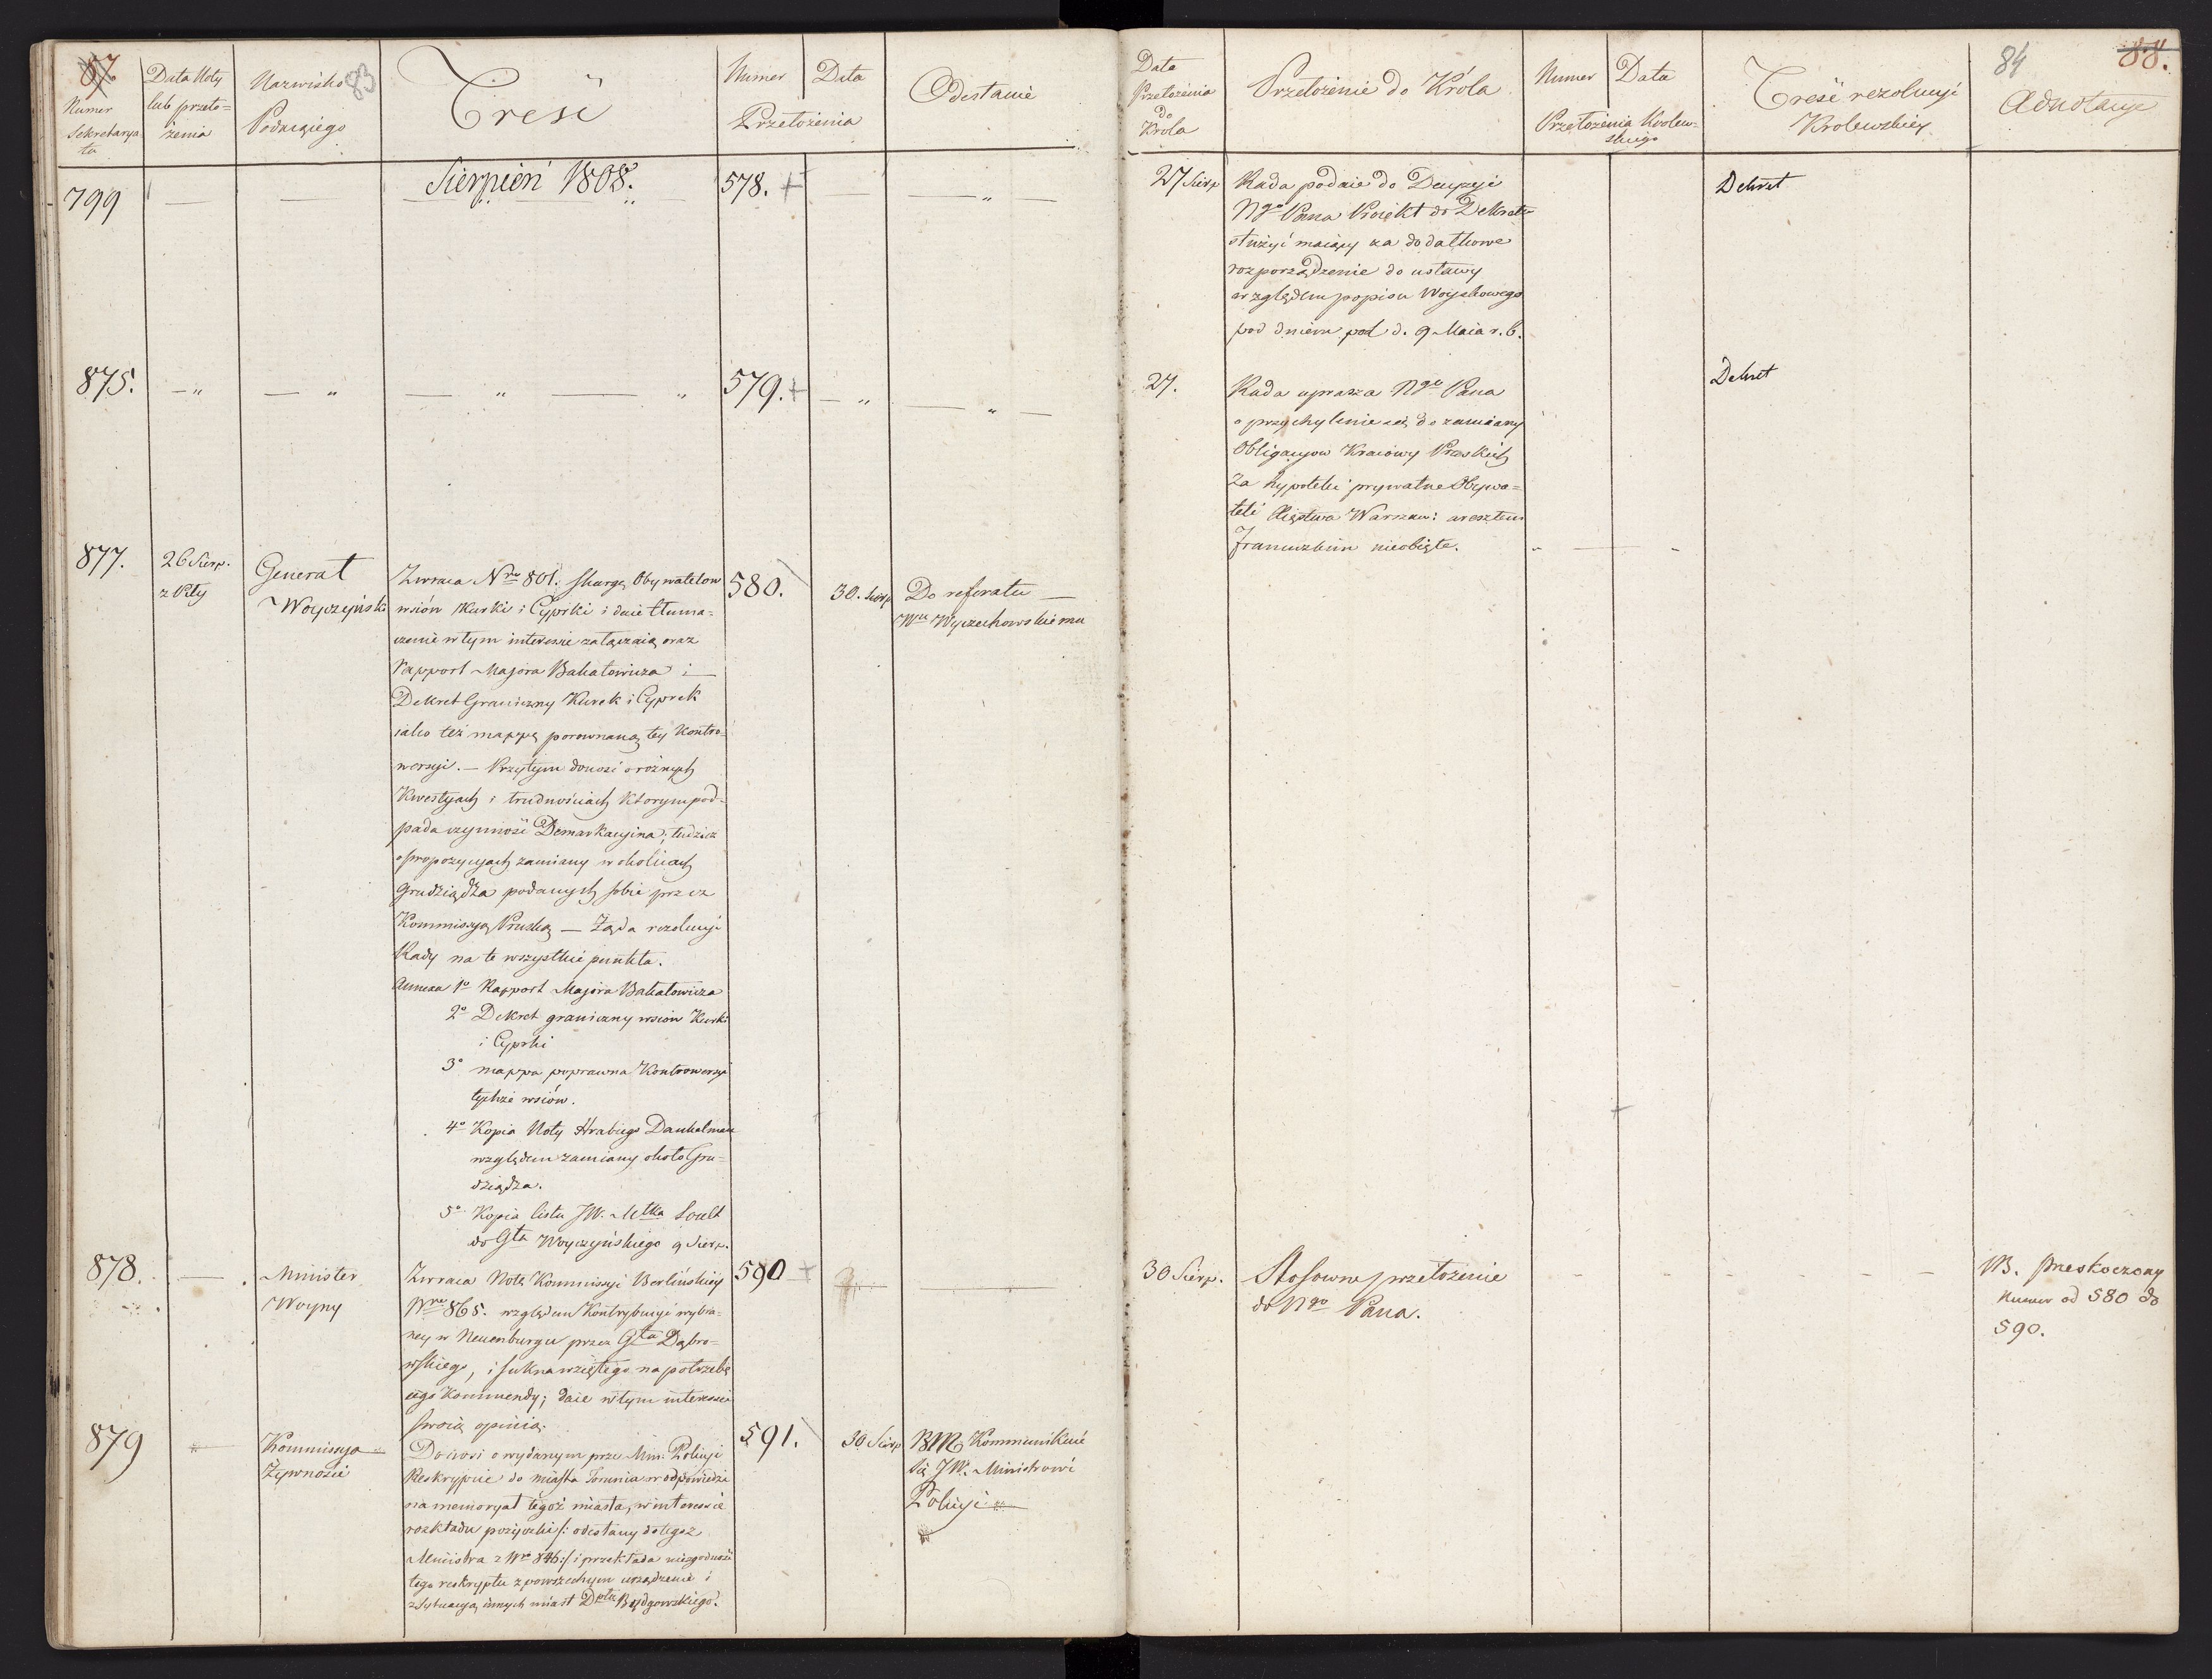 87
83
Numer
Sekretarya
tu
Data Noty
lub przeło=
żenia
Nazwisko
Podaiącego
Treść
Numer
Data
Przełożenia
Odesłanie
Sierpień 1808.
799
578. +
875.
579. +
877.
26 Sierp.
z Piły
Generał
Woyczyński
Zwraca Nro 801. skargę Obywatelow
wsiów Kurki i Cyprki i daie tłuma=
czenie w tym interessie załączaiąc oraz
Rapport Majora Bakałowicza i
Dekret Graniczny Kurek i Cyprek
iako też mappę porownaną tey Kontro=
wersyi. — Przytym donosi o rożnych
Kwestyach i trudnościach ktorym pod=
pada czynność Demarkacyina, tudzież
o propozycyach zamiany w okolicach
Grudziądza podanych sobie przez
Kommissyą Pruską — Żąda rezolucyi
Rady na te wszystkie punkta.
Annexa 1o Rapport Majora Bakałowicza
2o Dekret graniczny wsiow Kurki
i Cyprki
3o mappa poprawna Kontrowersyi
tychże wsiów.
4o Kopia Noty Hrabiego Dankelman
względem zamiany około Gru=
dziądza.
5o Kopia listu JW. Młka Soult
do Gła Woyczyńskiego 9 Sierp.
580.
30. Sierp
Do referatu —
Wu Wyczechowskiemu
878.
Minister
Woyny
Zwraca Notę Kommissyi Berlińskiey
Nro 865. względem Kontrybucyi wybra=
ney w Neuenburgu przez Gła Dąbro=
wskiego, i sukna wziętego na potrzebę
iego Kommendy; daie w tym interessie
swoią opinią.
590 +
879
Kommissya
Żywności
Donosi o wydanym przez Min: Policyi
Reskrypcie do miasta Torunia w odpowiedzi
na memoryał tegoż miasta, w interessie
rozkładu pożyczki /: odesłany do tegoż
Ministra z Nro 846:/ i przekłada niezgodność
tego reskryptu z powszechnym urządzeniem i
z sytuacyą innych miast Dptu Bydgowskiego.
591.
30 Sierp
BM. Kommunikuie
się JW. Ministrowi
Policyi
84
88.
Data
Przełożenia
do
Krola
Przełożenie do Króla
Numer
Data
Przełożenia Krolew=
skiego
Treść rezolucyi
Krolewskiey
Adnotacye
27 Sierp
Rada podaie do Decyzyi
Ngo Pana Proiekt do Dekretu
służyć maiący za dodatkowe
rozporządzenie do ustawy
względem popisu Woyskowego
pod dniem pod d. 9 Maia r. b.
Dekret
27.
Rada uprasza Ngo Pana
o przychylenie się do zamiany
Obligacyow Kraiowych Pruskich
Za hypoteki prywatne Obywa=
teli Xięstwa Warszaw: aresztem
francuzkim nieobięte.
Dekret
30 Sierp.
Stosowne przełożenie
do Ngo Pana.
NB. Przeskoczony
Numer od 580 do
590.